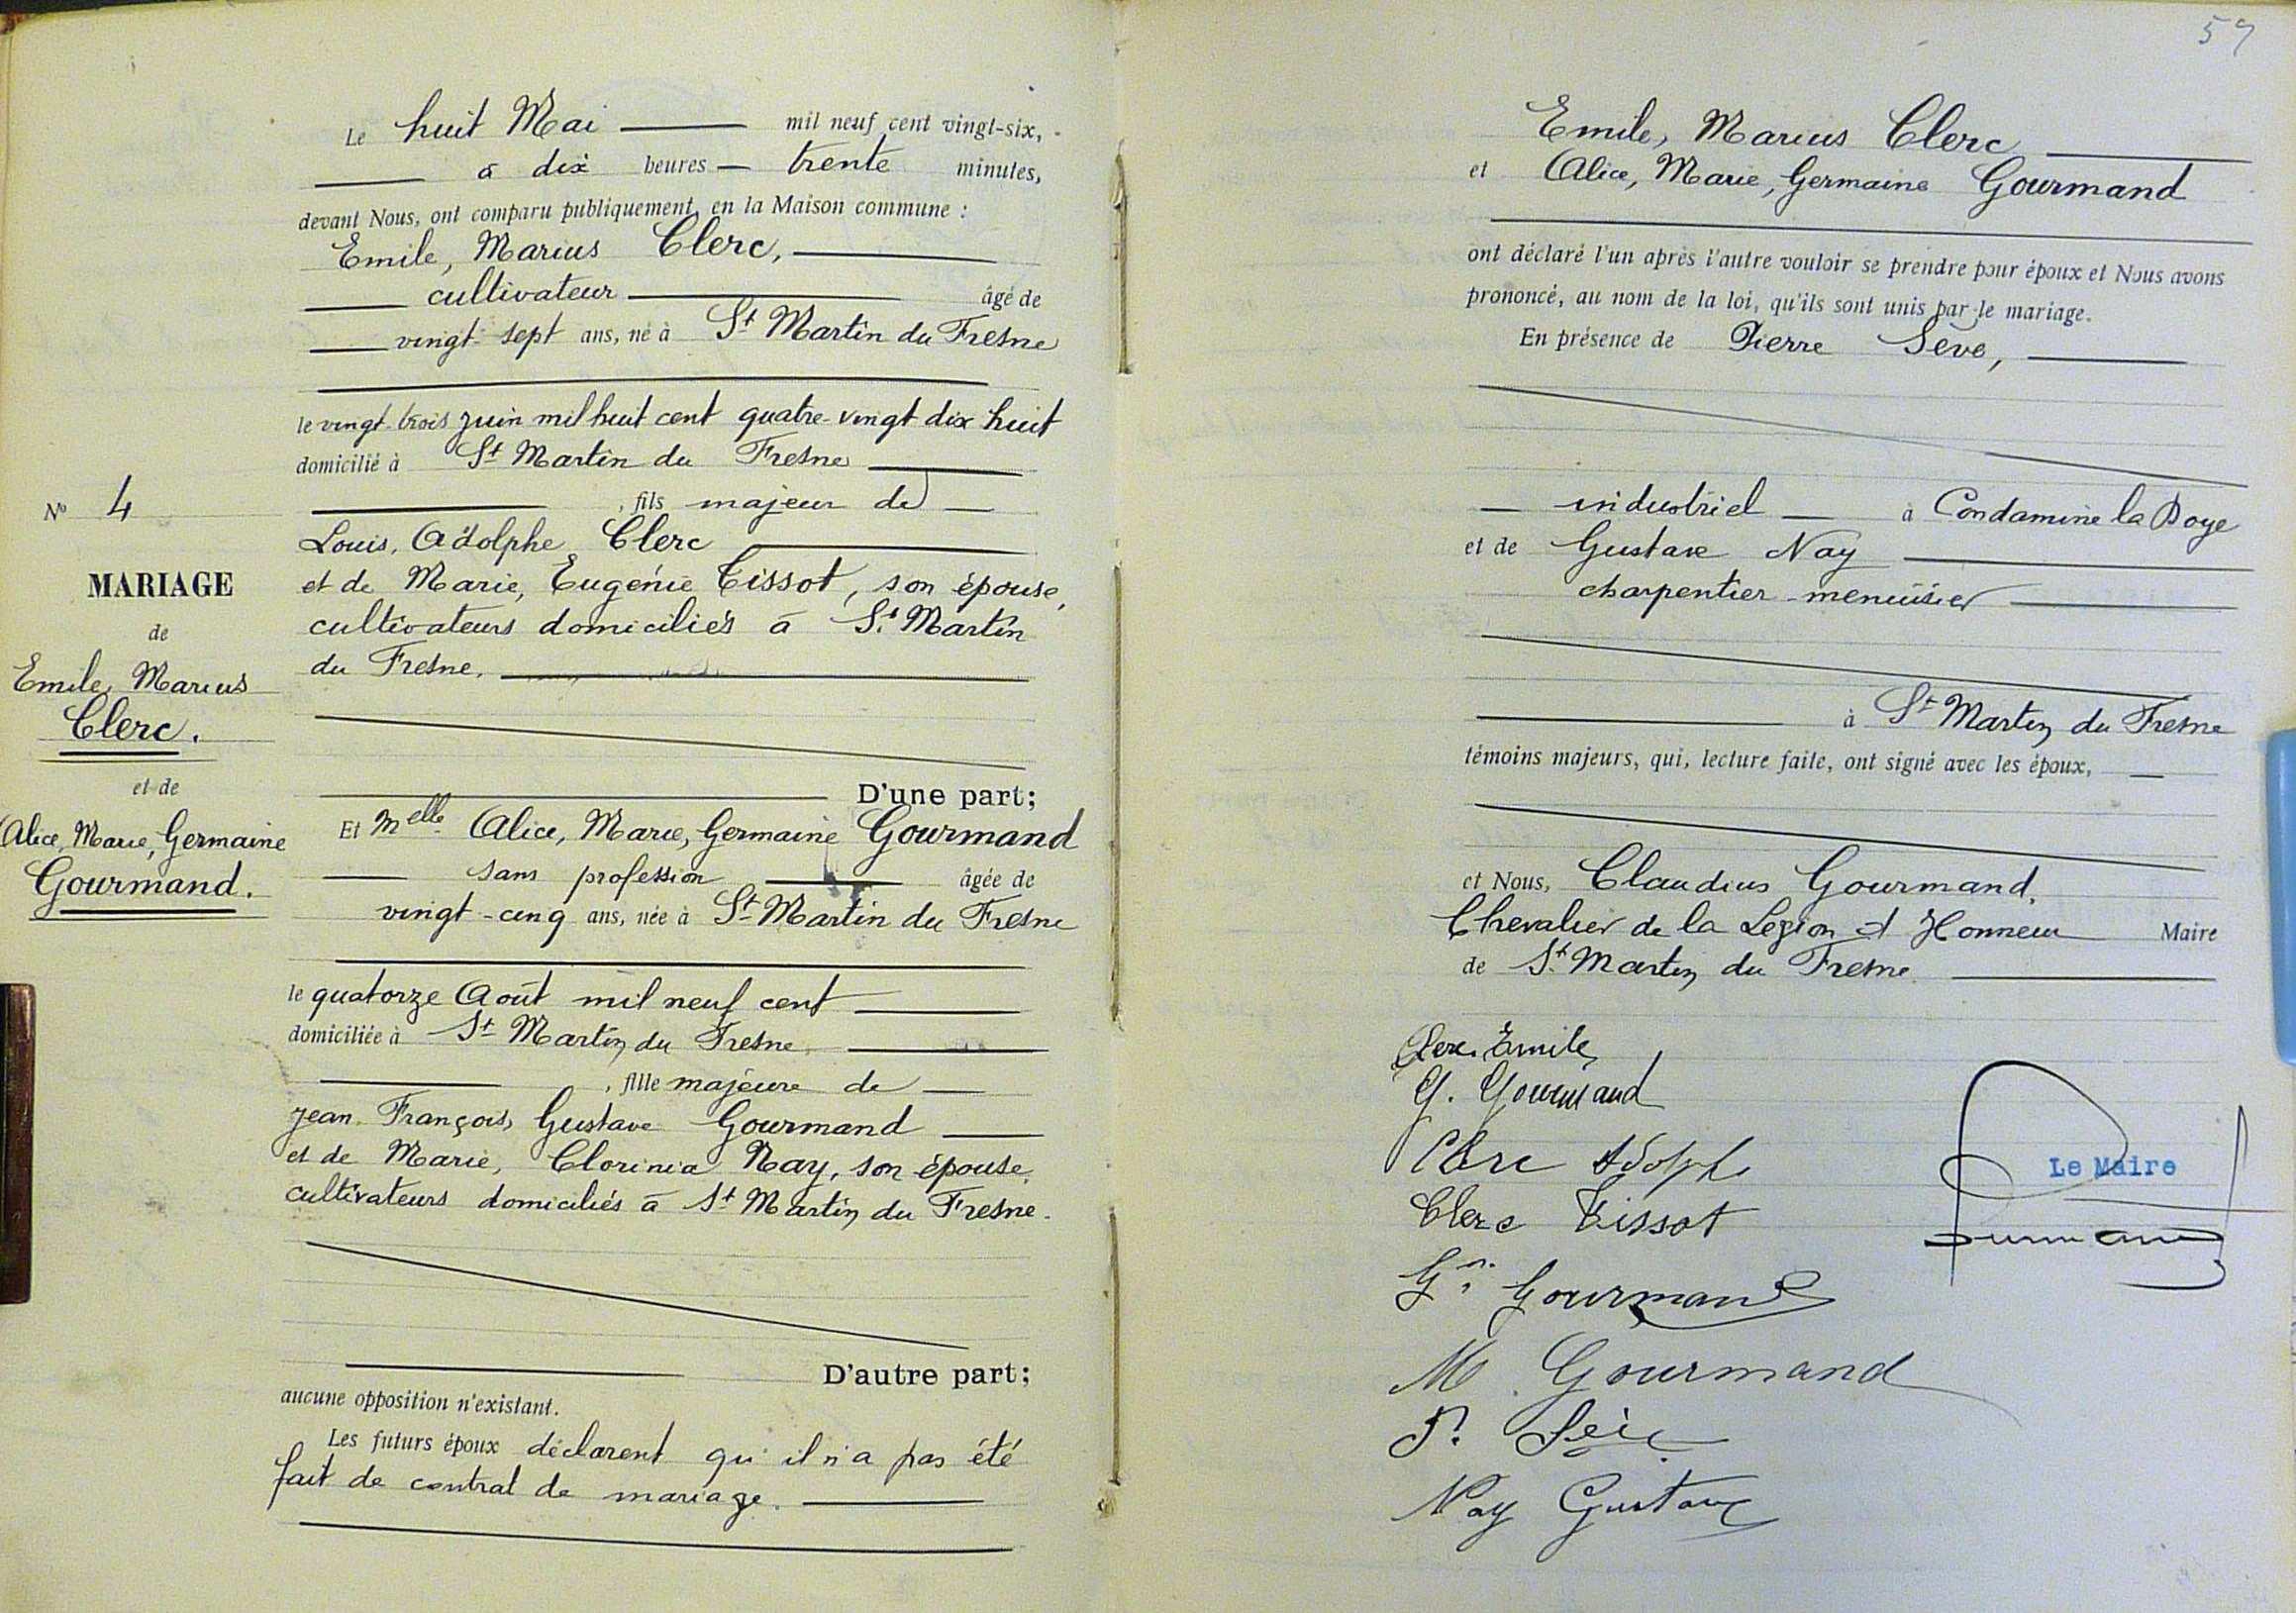 Le huit Mai mil neuf cent vingt-six,
à dix heures trente minutes,
devant Nous, ont comparu publiquement en la Maison commune :
Emile, Marius Clerc,
cultivateur âgé de
vingt-sept ans, né à St Martin du Fresne
le vingt-trois juin mil huit cent quatre-vingt dix huit
domicilié à St Martin du Fresne
, fils majeur de
Louis, Adolphe Clerc
et de Marie, Eugénie Tissot, son épouse,
cultivateurs domiciliés à St Martin
du Fresne.
No 4
MARIAGE
de
Emile, Marius
Clerc.
et de
Alice, Marie, Germaine
Gourmand.
D'une part;
Et Melle Alice, Marie, Germaine Gourmand
sans profession âgée de
vingt-cinq ans, née à St Martin du Fresne
le quatorze Août mil neuf cent
domiciliée à St Martin du Fresne
, fille majeure de
Jean François, Gustave Gourmand
et de Marie, Clorinia Nay, son épouse,
cultivateurs domiciliés à St Martin du Fresne.
D'autre part;
aucune opposition n'existant.
Les futurs époux déclarent qu'il n'a pas été
fait de contrat de mariage.
59
Emile, Marius Clerc
et Alice, Marie, Germaine Gourmand
ont déclaré l'un après l'autre vouloir se prendre pour époux et Nous avons
prononcé, au nom de la loi, qu'ils sont unis par le mariage.
En présence de Pierre Sève,
industriel à Condamine la Doye
et de Gustave Nay
charpentier-menuisier
à St Martin du Fresne
témoins majeurs, qui, lecture faite, ont signé avec les époux,
et Nous, Claudius Gourmand,
Chevalier de la Légion d'Honneur Maire
de St Martin du Fresne
Clerc Emile
G. Gourmand
Clerc Adolphe
Clerc Tissot
Gourmand
M. Gourmand
P. Sève
Nay Gustave
Le Maire
Gourmand